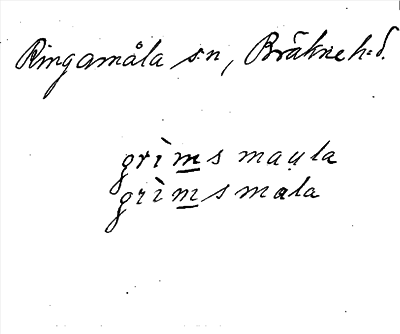 Ringamåla sn, Bräkne hd.
grìm̲s maụla
grìm̲s mala